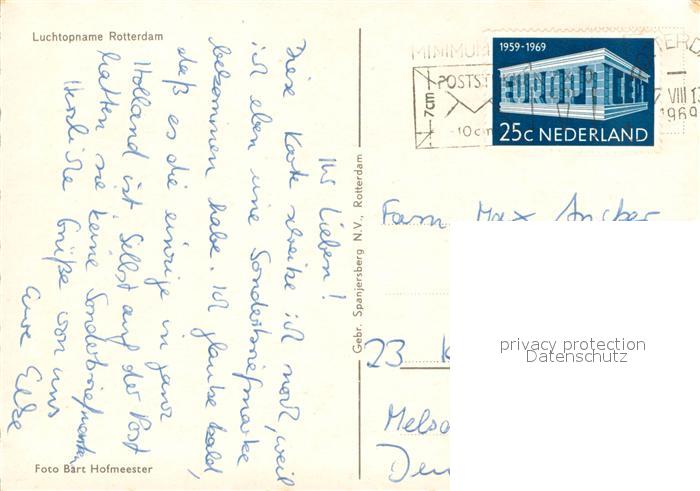 Luchtopname Rotterdam
Ihr Lieben!
Diese Karte schreibe ich noch, weil
ich eben eine Sonderbriefmarke
bekommen habe. Ich glaube bald,
daß es die einzige in ganz
Holland ist. Selbst auf der Post
hatten sie keine Sondebriefmarken
Herzliche Grüße von uns
Eure Elke
Foto Bart Hofmeester
Gebr. Spanjersberg N.V., Rotterdam
MINIMUM
POSTST
10 cm
VIII 1
1969
1959-1969
EUROPA CEPT
25c NEDERLAND
Fam Max
23 K
Melso
privacy protection
Datenschutz